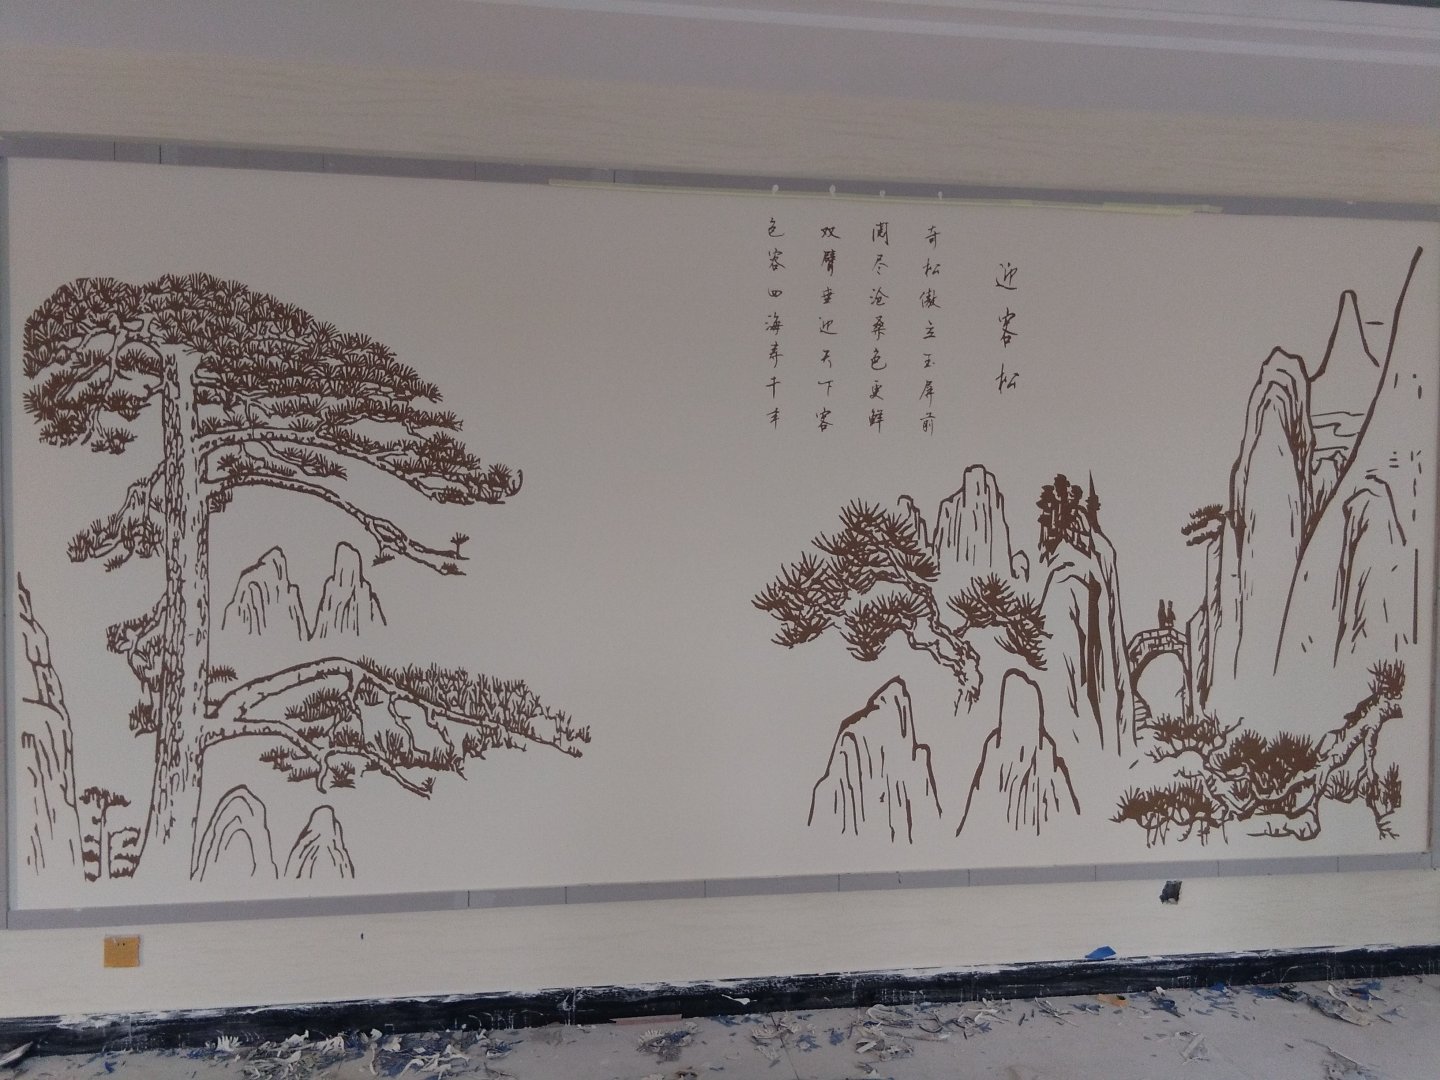 迎客松
奇松傲立玉屏前
阅尽沧桑色更鲜
双臂垂迎天下客
包容四海寿千年